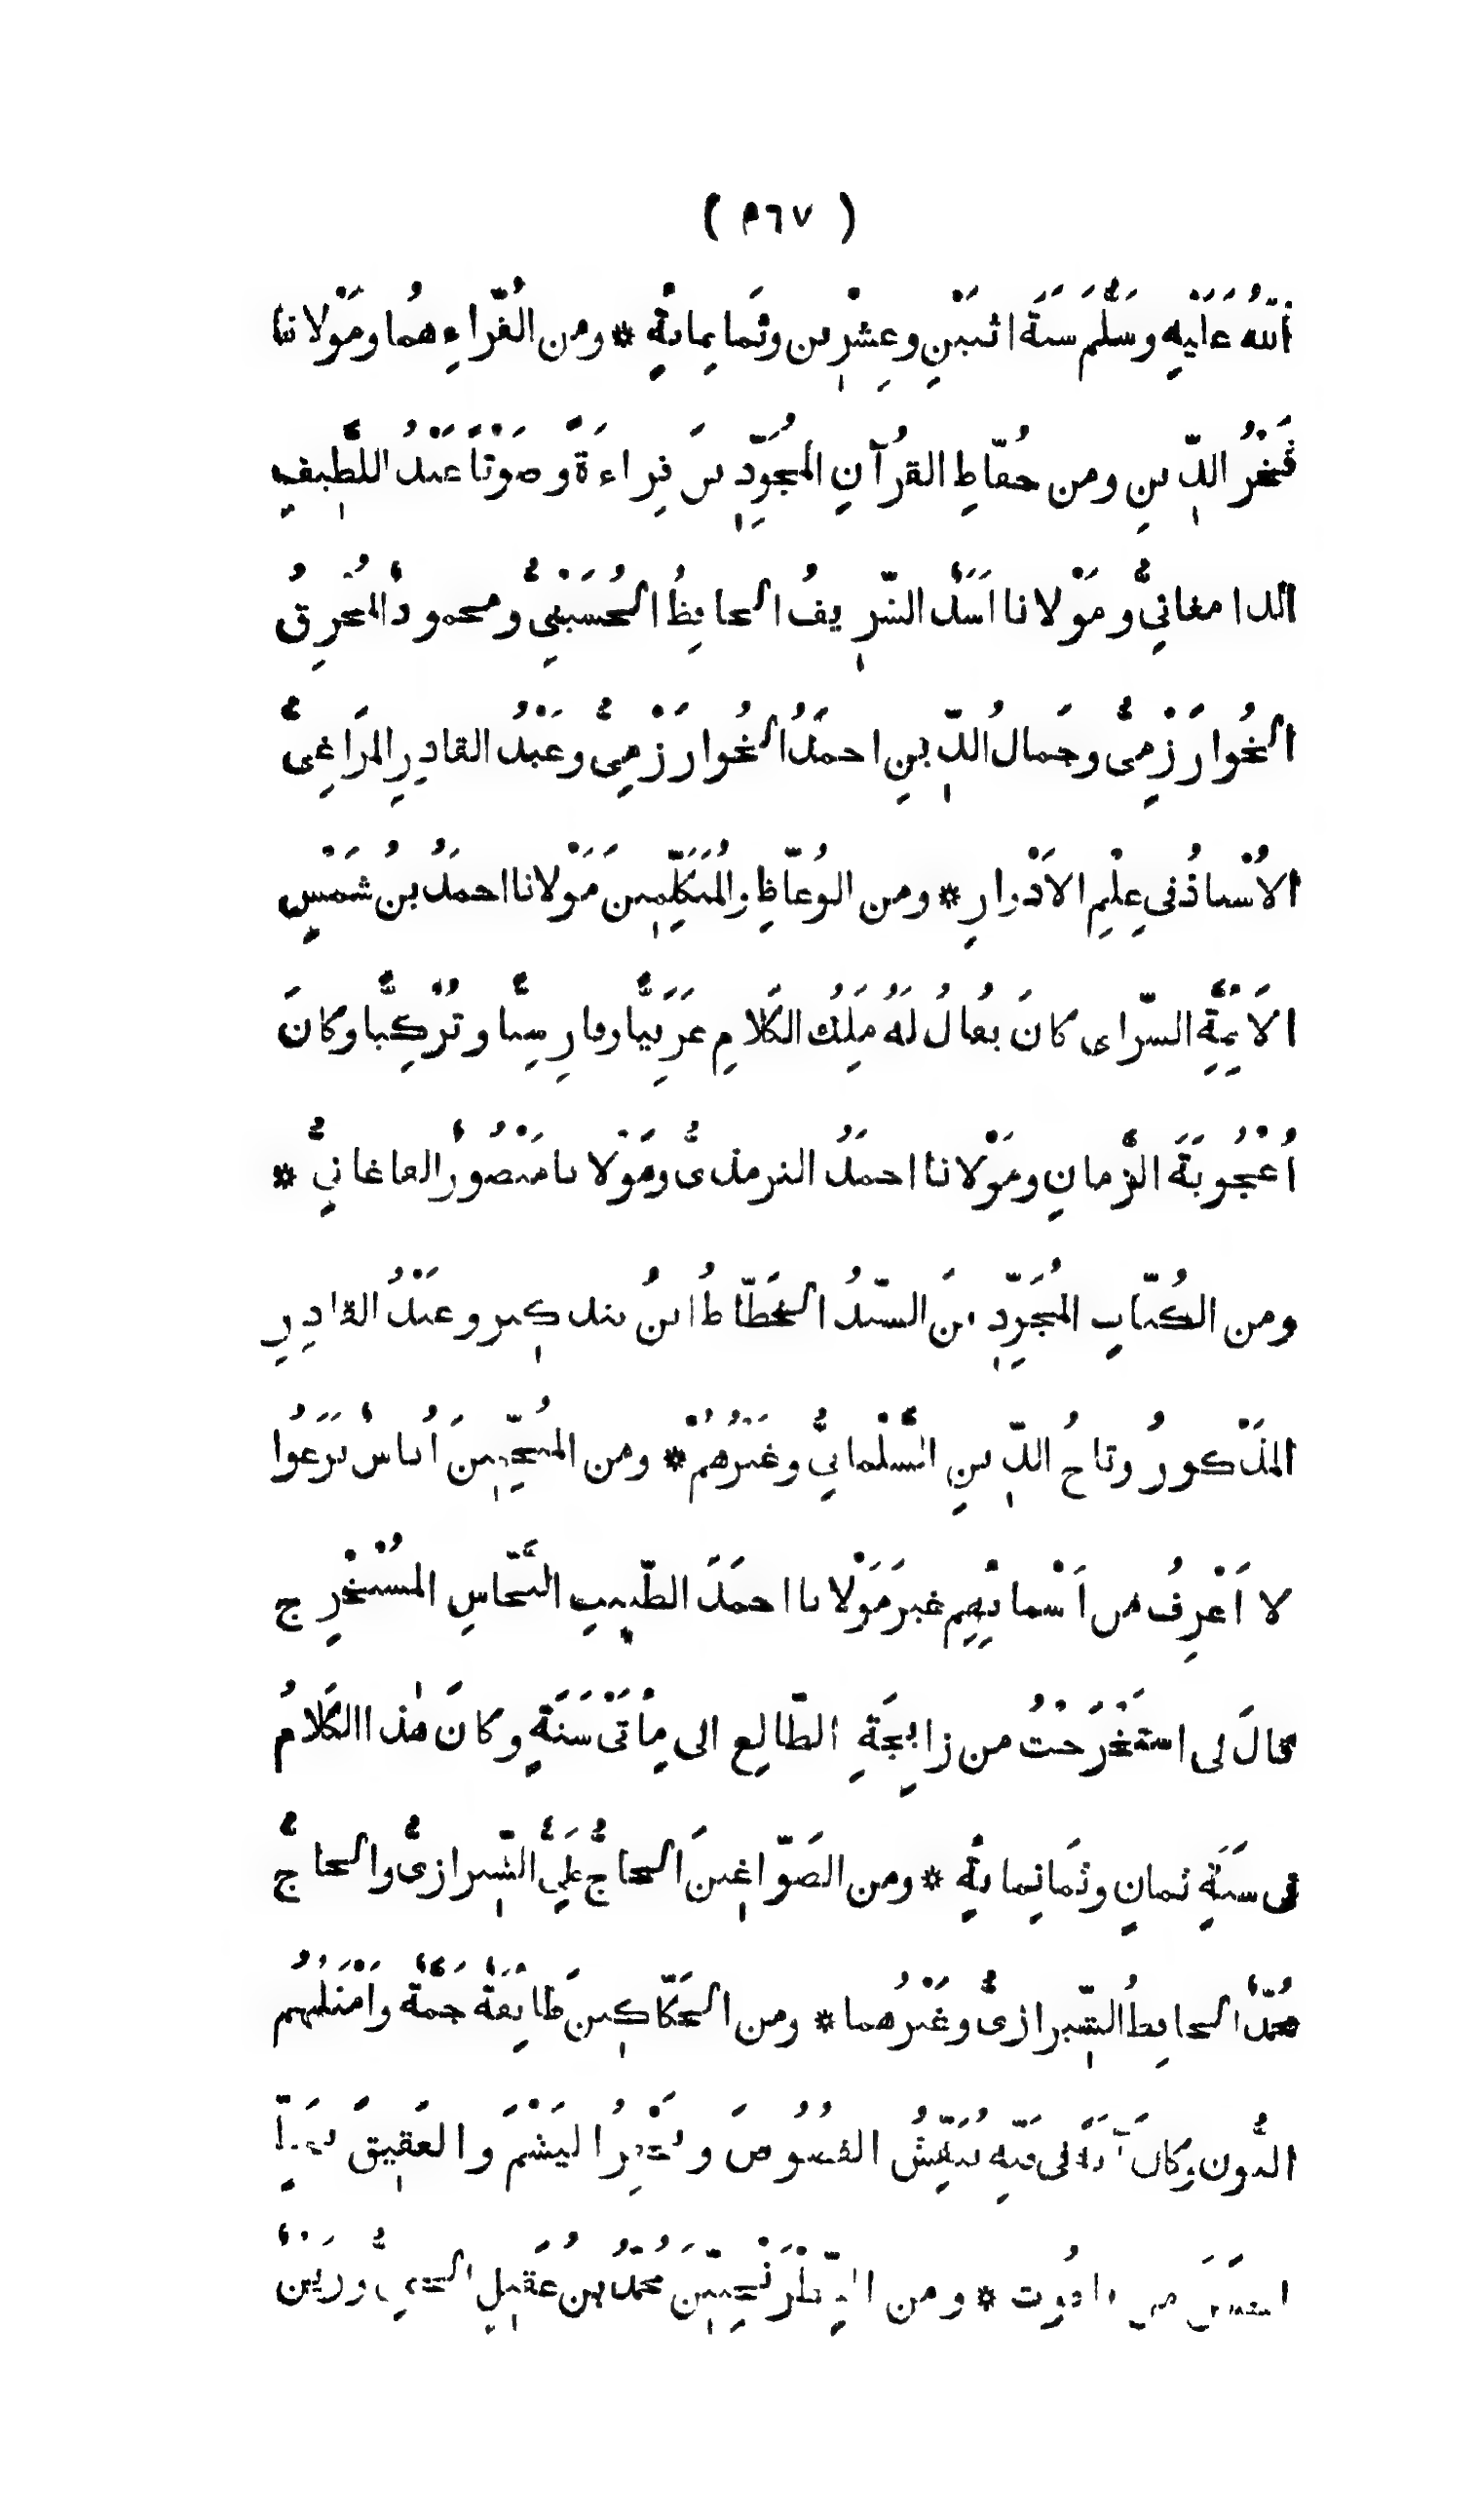 ( ٤٦٧ )
اللّٰهُ عَلَيْهِ وسَلَّمَ سَنَةَ اثْنَيْنِ وعِشْرِين وثَمانِمائةٍ * ومن القُرّاءِ هُما ومَوْلانا
فَخْرُ الدِّينِ ومن حُفّاظِ القُرآنِ المُجَوِّدِينَ قِراءةً وصَوْتًا عَبْدُ اللَّطِيفِ
الدامغانيُّ ومَوْلانا اَسَدٌ الشَّرِيفُ الحافِظُ الحُسَيْنِيُّ ومحمودٌ المُحْرِقُ
الخُوارَزْمِيُّ وجَمالُ الدِّينِ احمَدُ الخُوارَزْمِيُّ وعَبْدُ القادِرِ المَراغِيُّ
الاُسْتاذُ في عِلْمِ الاَدْوارِ * ومن الوُعّاظِ والمُتَكَلِّمِينَ مَوْلانا احمَدُ بنُ شَمْسِ
الاَئِمَّةِ السَّرّاى كانَ يقالُ لَهُ مَلِكُ الكَلامِ عَرَبِيًّا وفارِسِيًّا وتُرْكِيًّا وكانَ
اُعْجُوبَةَ الزَّمانِ ومَوْلانا احمَدُ الترمذىُّ ومَوْلانا مَنْصُورٌ القاغانيُّ *
ومن الكُتّابِ المُجَوِّدِينَ السَّيِّدُ الخَطّاطُ ابنُ بندكير وعَبْدُ القادِرِ
المَذْكورُ وتاجُ الدِّينِ السَّلْمانِيُّ وغَيْرُهُمْ * ومن المُنَجِّمِينَ اُناسٌ بَرَعُوا
لا اَعْرِفُ من اَسْمائِهِم غيرَ مَوْلانا احمَدَ الطَّبِيبِ النَّحّاسِ المُسْتَخْرِجِ
قالَ لى استَخْرَجْتُ من زايِجَةِ الطّالِعِ الى مِأَتَىْ سَنَةٍ وكانَ هٰذا الكَلامُ
فى سَنَةِ ثمانٍ وثَمانِمائةٍ * ومن الصَّوّاغِينَ الحاجُّ عَلِيٌّ الشِّيرازىُّ والحاجُّ
محمّدٌ الحافِظُ الشِّيرازىُّ وغَيْرُهُما * ومن الحَكّاكِينَ طائِفَةٌ جَمَّةٌ واَمْثَلُهُم
التُون وكانَ آيَةً فى فَنِّهِ يُنَقِّشُ الفُصُوصَ ويَحْفِرُ اليَشْمَ والعَقِيقَ بخَطٍّ
احسَنَ من ياقُوت * ومن الشِّطْرَنْجِيِّينَ مُحَمَّدُ بنُ عَقِيلٍ الخَيْمِيُّ وزَيْنٌ